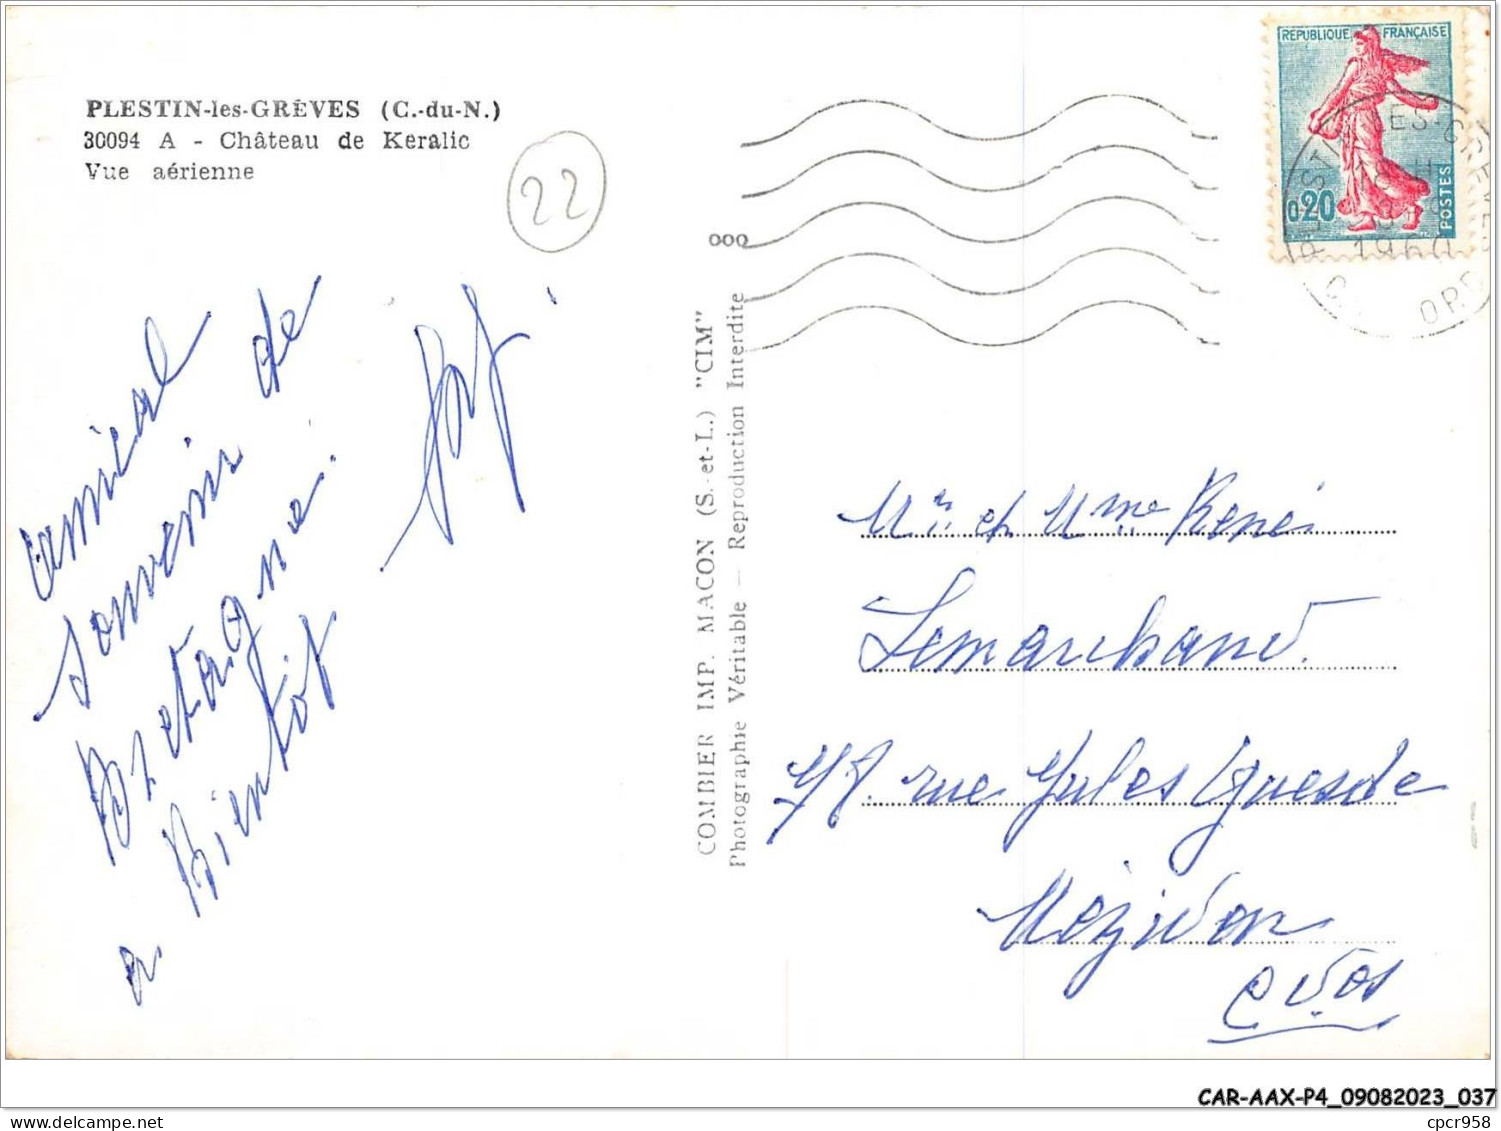 PLESTIN-les-GRÈVES (C.-du-N.)
30094 A - Château de Keralic
Vue aérienne
22
REPUBLIQUE FRANÇAISE
0,20
POSTES
1960
ooo
amical
souvenir de
Bretagne.
a Bientôt
COMBIER IMP. MACON (S.-et-L.) "CIM"
Photographie Véritable — Reproduction Interdite
Mr et Mme René
Lemarchand.
rue Jules Guesde
Mézidon
CAR-AAX-P4_09082023_037
cpcr958